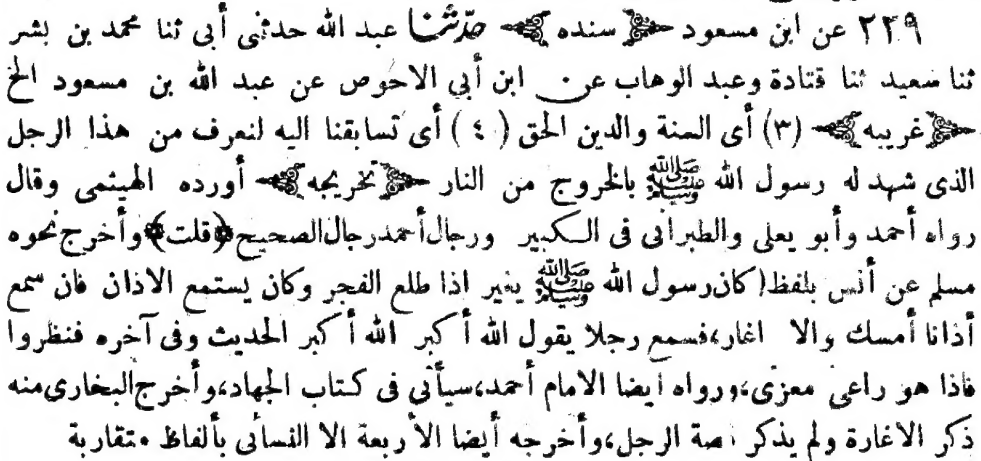 ٢٣٩ عن ابن مسعود ﴿ سنده ﴾ حدّثنا عبد الله حدثنى أبى ثنا محمد بن بشر
ثنا سعيد ثنا قتادة وعبد الوهاب عن ابن أبي الاحوص عن عبد الله بن مسعود الخ
﴿ غريبه ﴾ (٣) أى السنة والدين الحق (٤) أى تسابقنا اليه لنعرف من هذا الرجل
الذى شهد له رسول الله ﷺ بالخروج من النار ﴿ تخريجه ﴾ أورده الهيثمى وقال
رواه أحمد وأبو يعلى والطبرانى فى الكبير ورجال أحمد رجال الصحيح ﴿قلت﴾ وأخرج نحوه
مسلم عن أنس بلفظ (كان رسول الله ﷺ يغير اذا طلع الفجر وكان يستمع الاذان فان سمع
أذانا أمسك والا اغار، فسمع رجلا يقول الله أكبر الله أكبر الحديث وفى آخره فنظروا
فاذا هو راعى معزى، ورواه ايضا الامام أحمد، سيأتى فى كتاب الجهاد، وأخرج البخارى منه
ذكر الاغارة ولم يذكر صة الرجل، وأخرجه أيضا الأربعة الا النسائى بألفاظ متقاربة